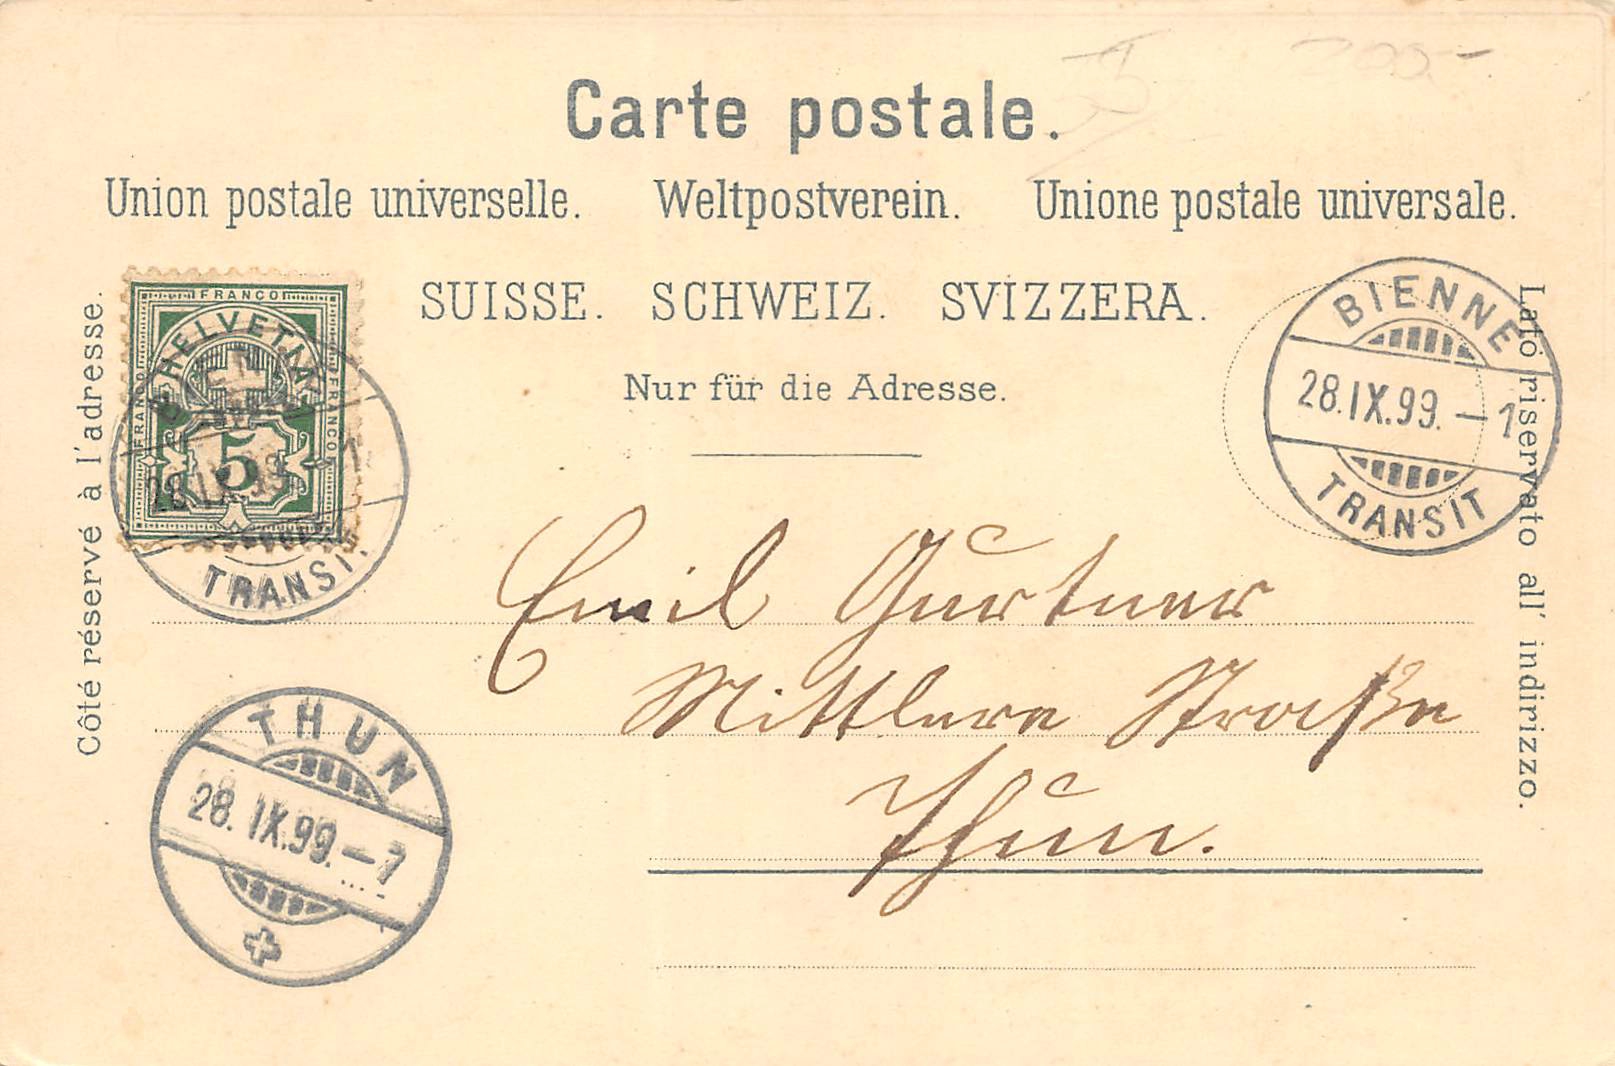 Carte postale.
Union postale universelle. Weltpostverein. Unione postale universale.
SUISSE. SCHWEIZ. SVIZZERA.
Nur für die Adresse.
Côté réservé à l'adresse.
Lato riservato all' indirizzo.
FRANCO
FRANCO
FRANCO
HELVETIA
5
28.IX.99
TRANSIT.
BIENNE
28.IX.99.–1
TRANSIT
THUN
28.IX.99.–7
Emil Gurtner
Mittlere Straße
Thun.